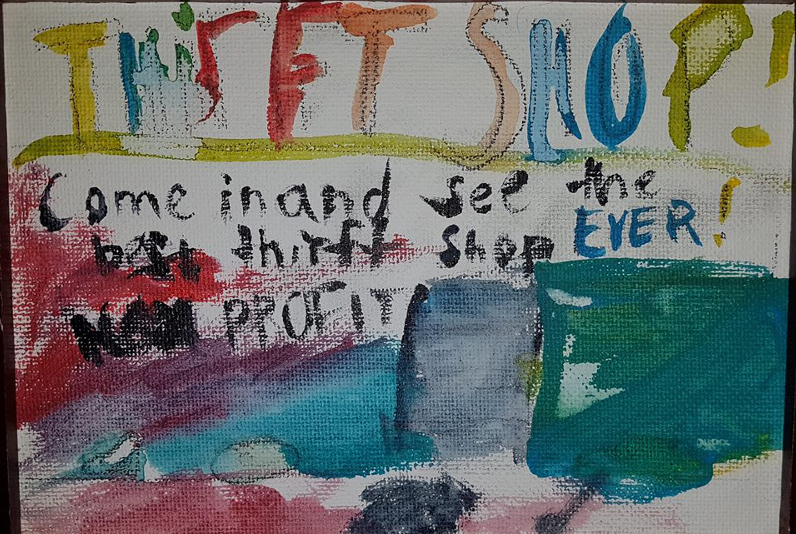 THRIFT SHOP!
Come in and see the
best thirft shop EVER!
NON PROFIT